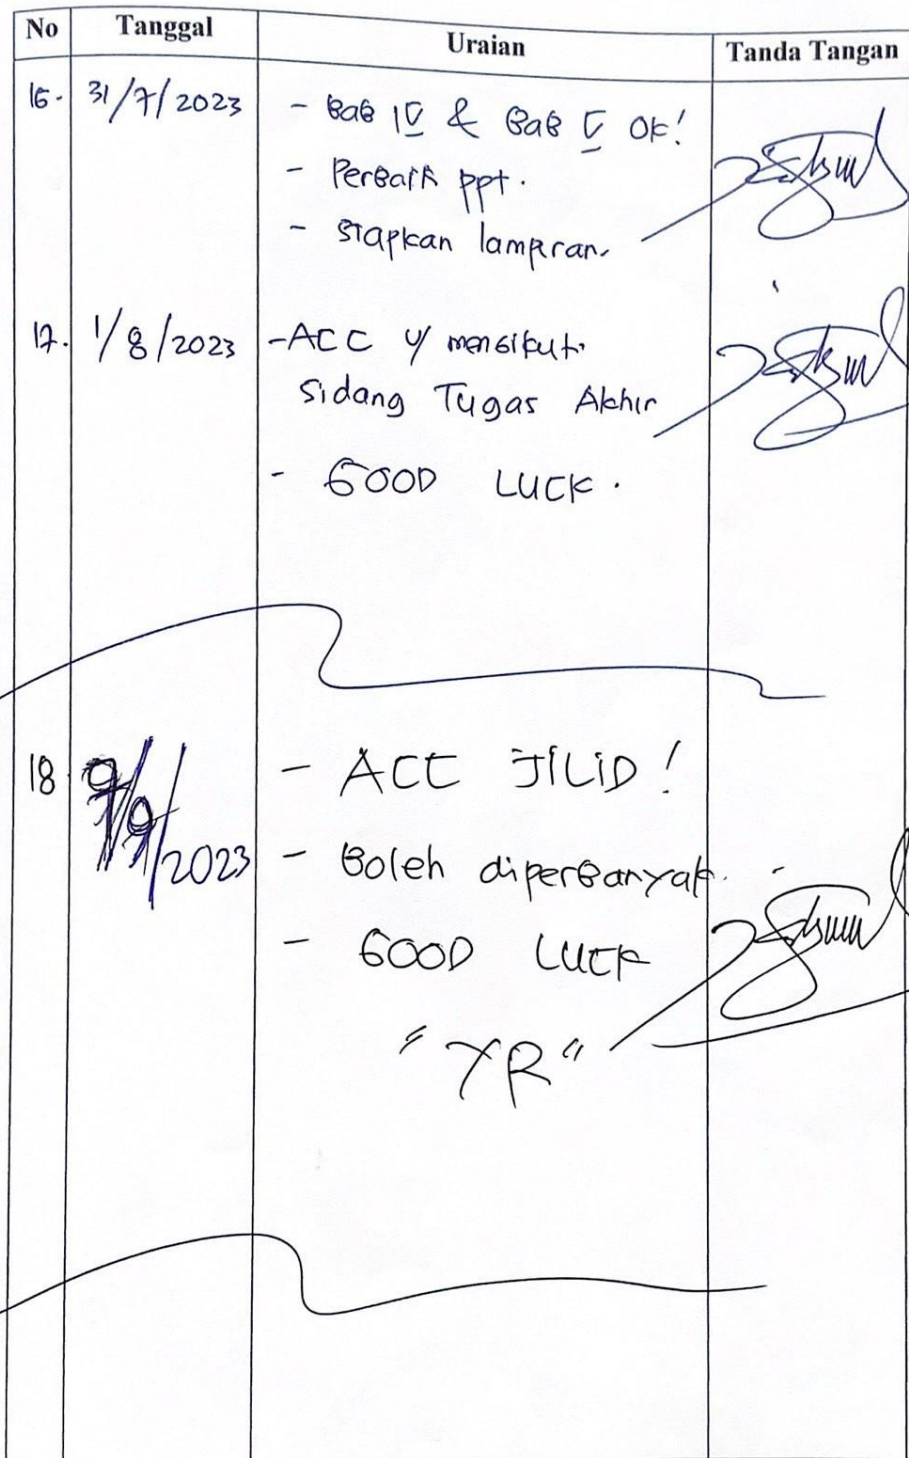 No Tanggal Uraian Tanda Tangan
16. 31/7/2023 - Bab IV & Bab V Ok!
- Perbaik ppt.
- Siapkan lampiran.
17. 1/8/2023 - ACC u/ mengikuti
Sidang Tugas Akhir
- GOOD LUCK.
18 9/9/2023 - ACC JILID!
- Boleh diperbanyak.
- GOOD LUCK
"YR"